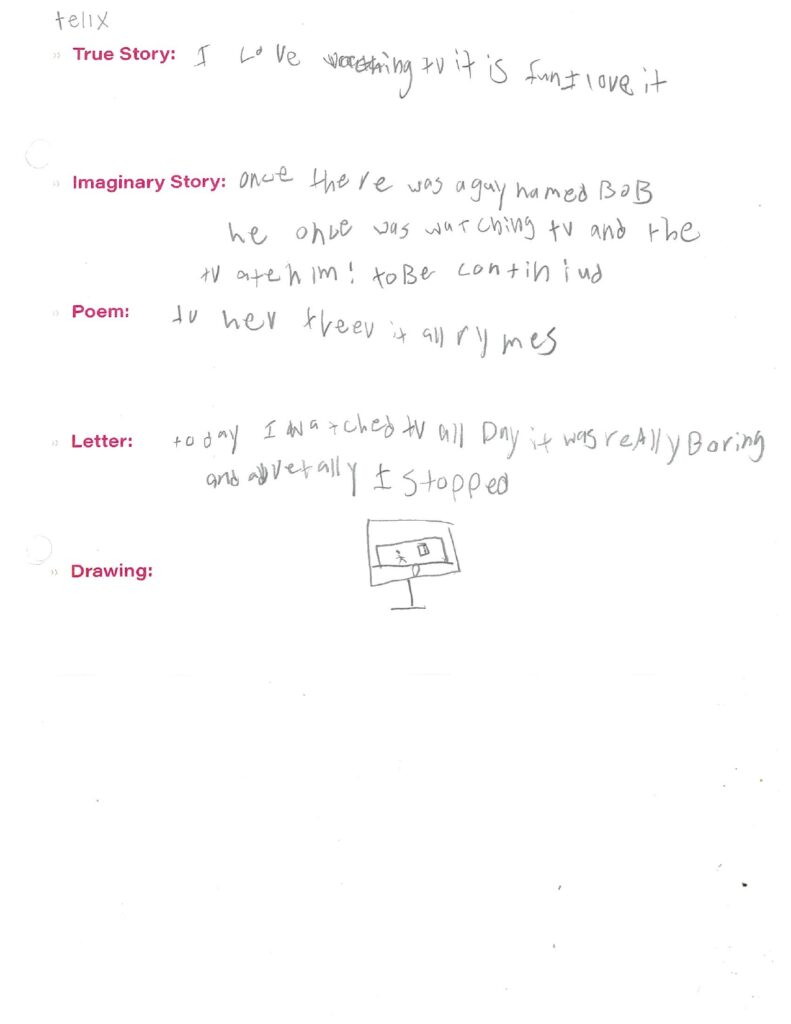 Felix
» True Story: I Love watching tv it is fun I love it
» Imaginary Story: once there was a guy named BoB
he once was watching tv and the
tv ate him! to Be continiud
» Poem: tv her threev it all rymes
» Letter: today I watched tv all Day it was reAlly Boring
and I stopped
» Drawing: